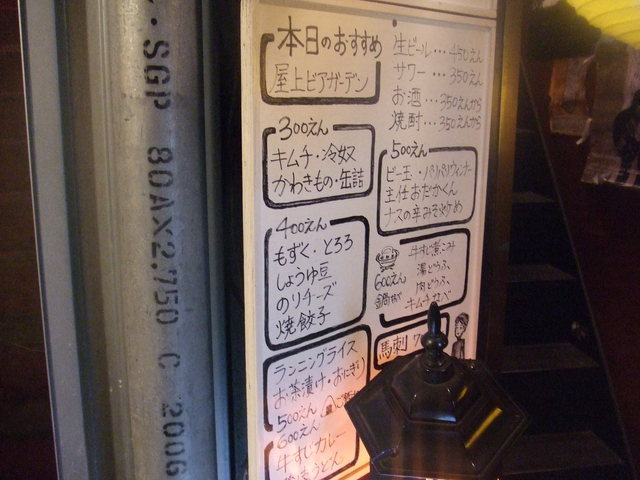 ・SGP 80A×2.750 C 2006
本日のおすすめ
屋上ビアガーデン
300えん
キムチ・冷奴
かわきもの・缶詰
400えん
もずく・とろろ
しょうゆ豆
のりチーズ
焼餃子
ランニングライス
お茶漬け・おにぎり
500えん
600えん
牛すじカレー
うどん
生ビール…450えん
サワー…350えん
お酒…350えんから
焼酎…350えんから
500えん
ピー玉・パリパリウィンナー
主任おだかくん
ナスの辛みそ炒め
牛すじ煮こみ
湯どうふ、
600えん
肉どうふ、
キムチなべ
馬刺